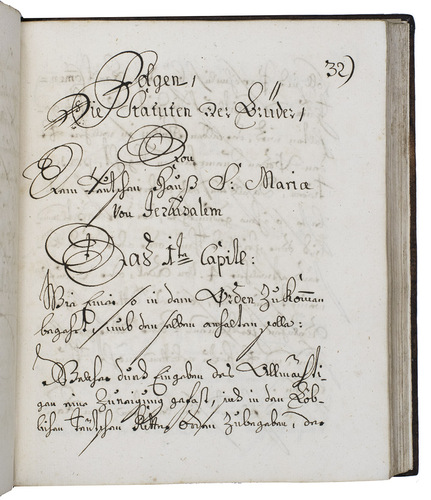 32)
Folgen,
Die Statuten der Brüder,
Von
Dem Teutschen Hauß S: Mariæ
Von Jerusalem
Das 1te Capitl:
Wie einer so in dem Orden zu kom̅en
begehrt, umb den selben anhalten solle:
Welcher durch Eingeben des Allmächti-
gen eine Zuneigung gefast, sich in den Löb-
lichen Teutschen Ritter Orden Zubegeben, der